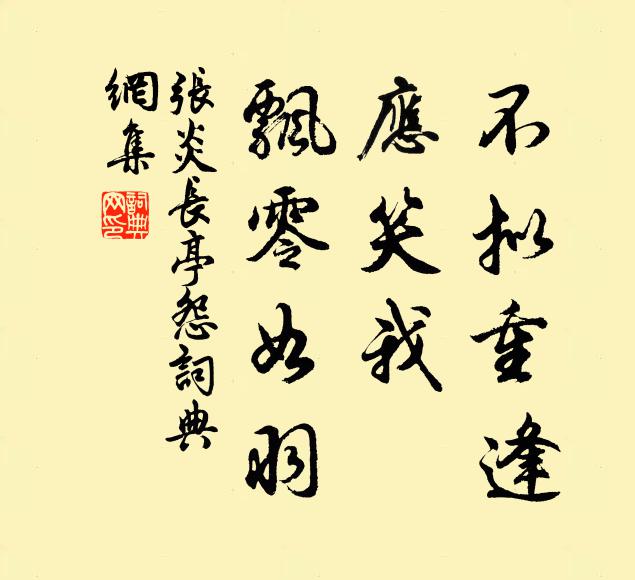 不拟重逢
應笑我
飄零如羽
張炎長亭怨詞典
網集
詞典
网印